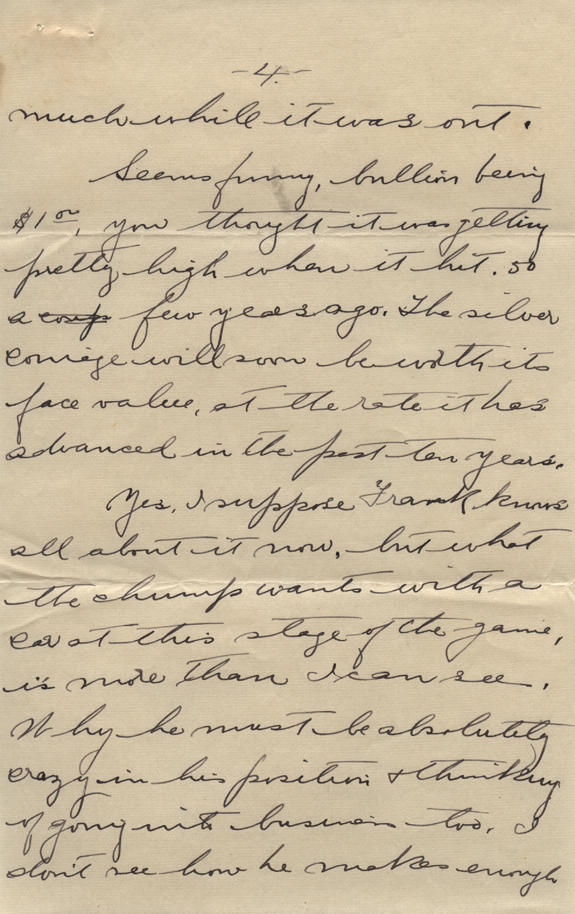 -4-
much while it was out.
Seems funny, bullion being
$1.00, you thought it was getting
pretty high when it hit .50
a coup few years ago. The silver
coniage will soon be worth its
face value, at the rate it has
advanced in the past ten years.
Yes, I suppose Frank knows
all about it now, but what
the chump wants with a
car at this stage of the game,
is more than I can see.
Why he must be absolutely
crazy in his position & thinking
of going into business too. I
don't see how he makes enough